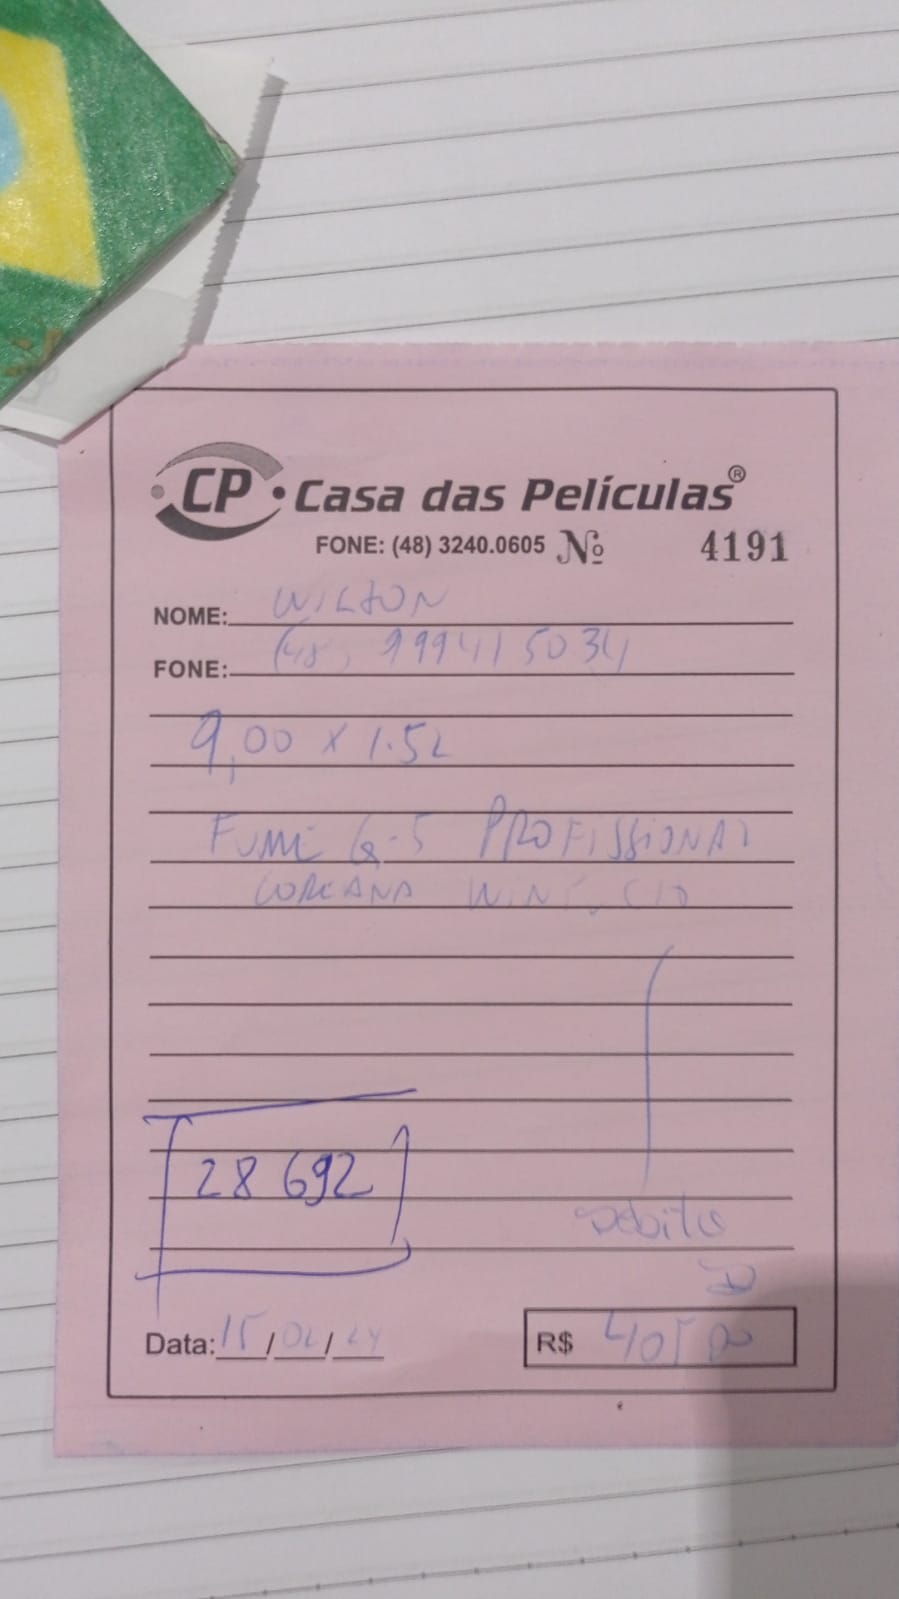 CP Casa das Películas®
FONE: (48) 3240.0605 Nº 4191
NOME: WILSON
FONE: (48) 999415034
9,00 x 1.52
FUME G-5 PROFISSIONAL
COREANA
28 692
Debito
Data: 15/02/24 R$ 405